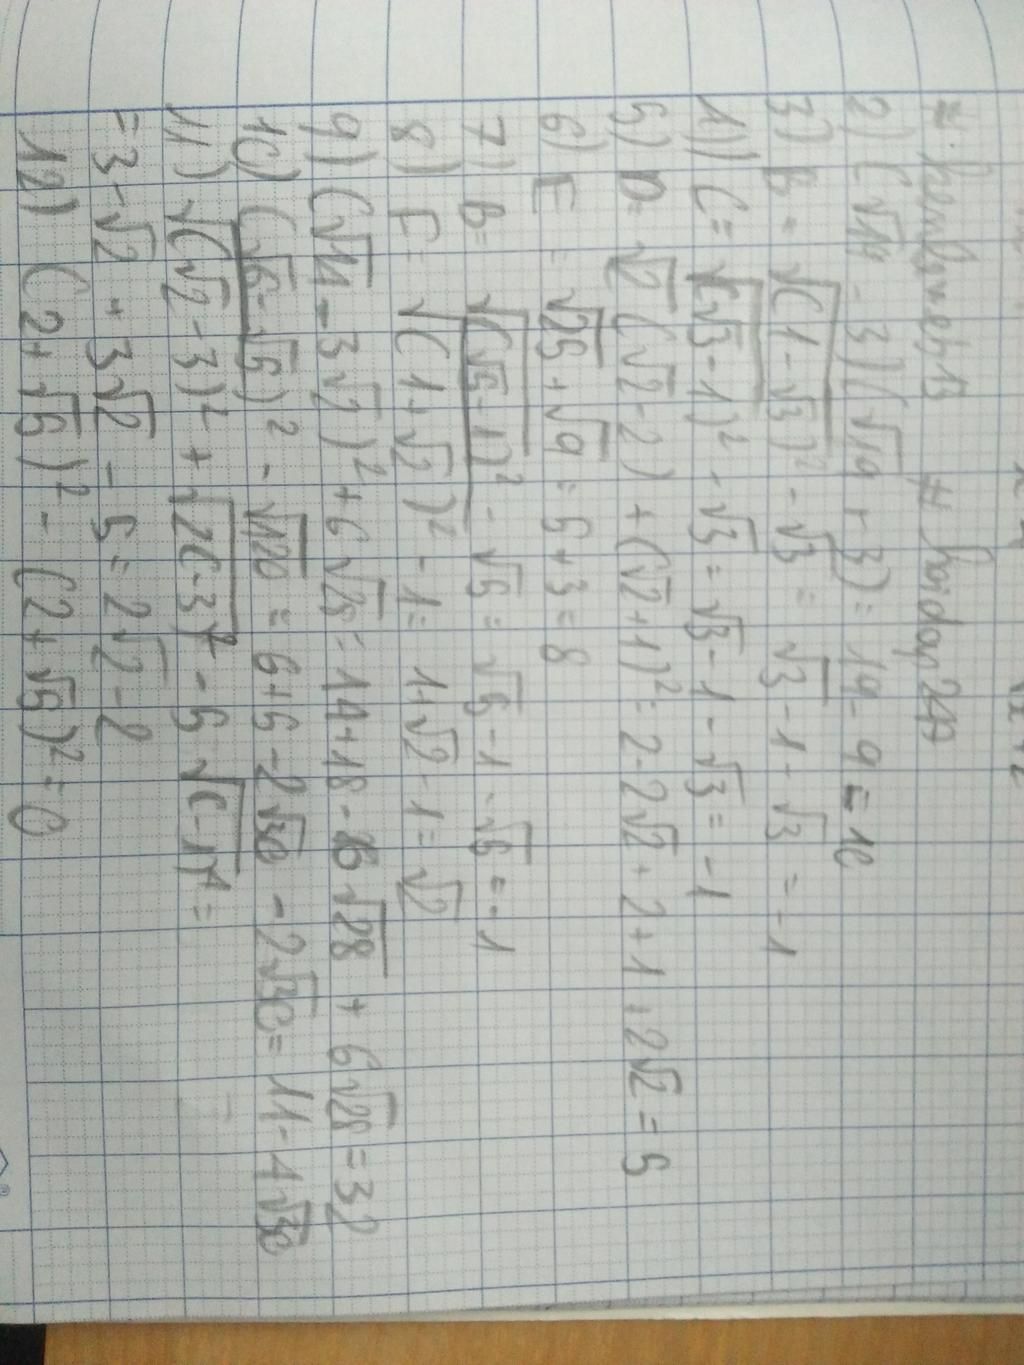 2) (√19 - 3)(√19 + 3) = 19 - 9 = 10
3) B = √(1 - √3)² - √3 = √3 - 1 - √3 = -1
4) C = √(√3 - 1)² - √3 = √3 - 1 - √3 = -1
5) D = √2(√2 - 2) + (√2 + 1)² = 2 - 2√2 + 2 + 1 + 2√2 = 5
6) E = √25 + √9 = 5 + 3 = 8
7) B = √(√5 - 1)² - √5 = √5 - 1 - √5 = -1
8) F = √(1 + √2)² - 1 = 1 + √2 - 1 = √2
9) (√14 - 3√2)² + 6√28 = 14 + 18 - 6√28 + 6√28 = 32
10) (√6 - √5)² - √120 = 6 + 5 - 2√30 - 2√30 = 11 - 4√30
11) √(√2 - 3)² + √2(-3)² - 5√(-1)⁴ =
= 3 - √2 + 3√2 - 5 = 2√2 - 2
12) (2 + √5)² - (2 + √5)² = 0